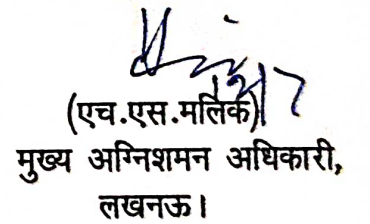 (एच.एस.मलिक)
मुख्य अग्निशमन अधिकारी,
लखनऊ।